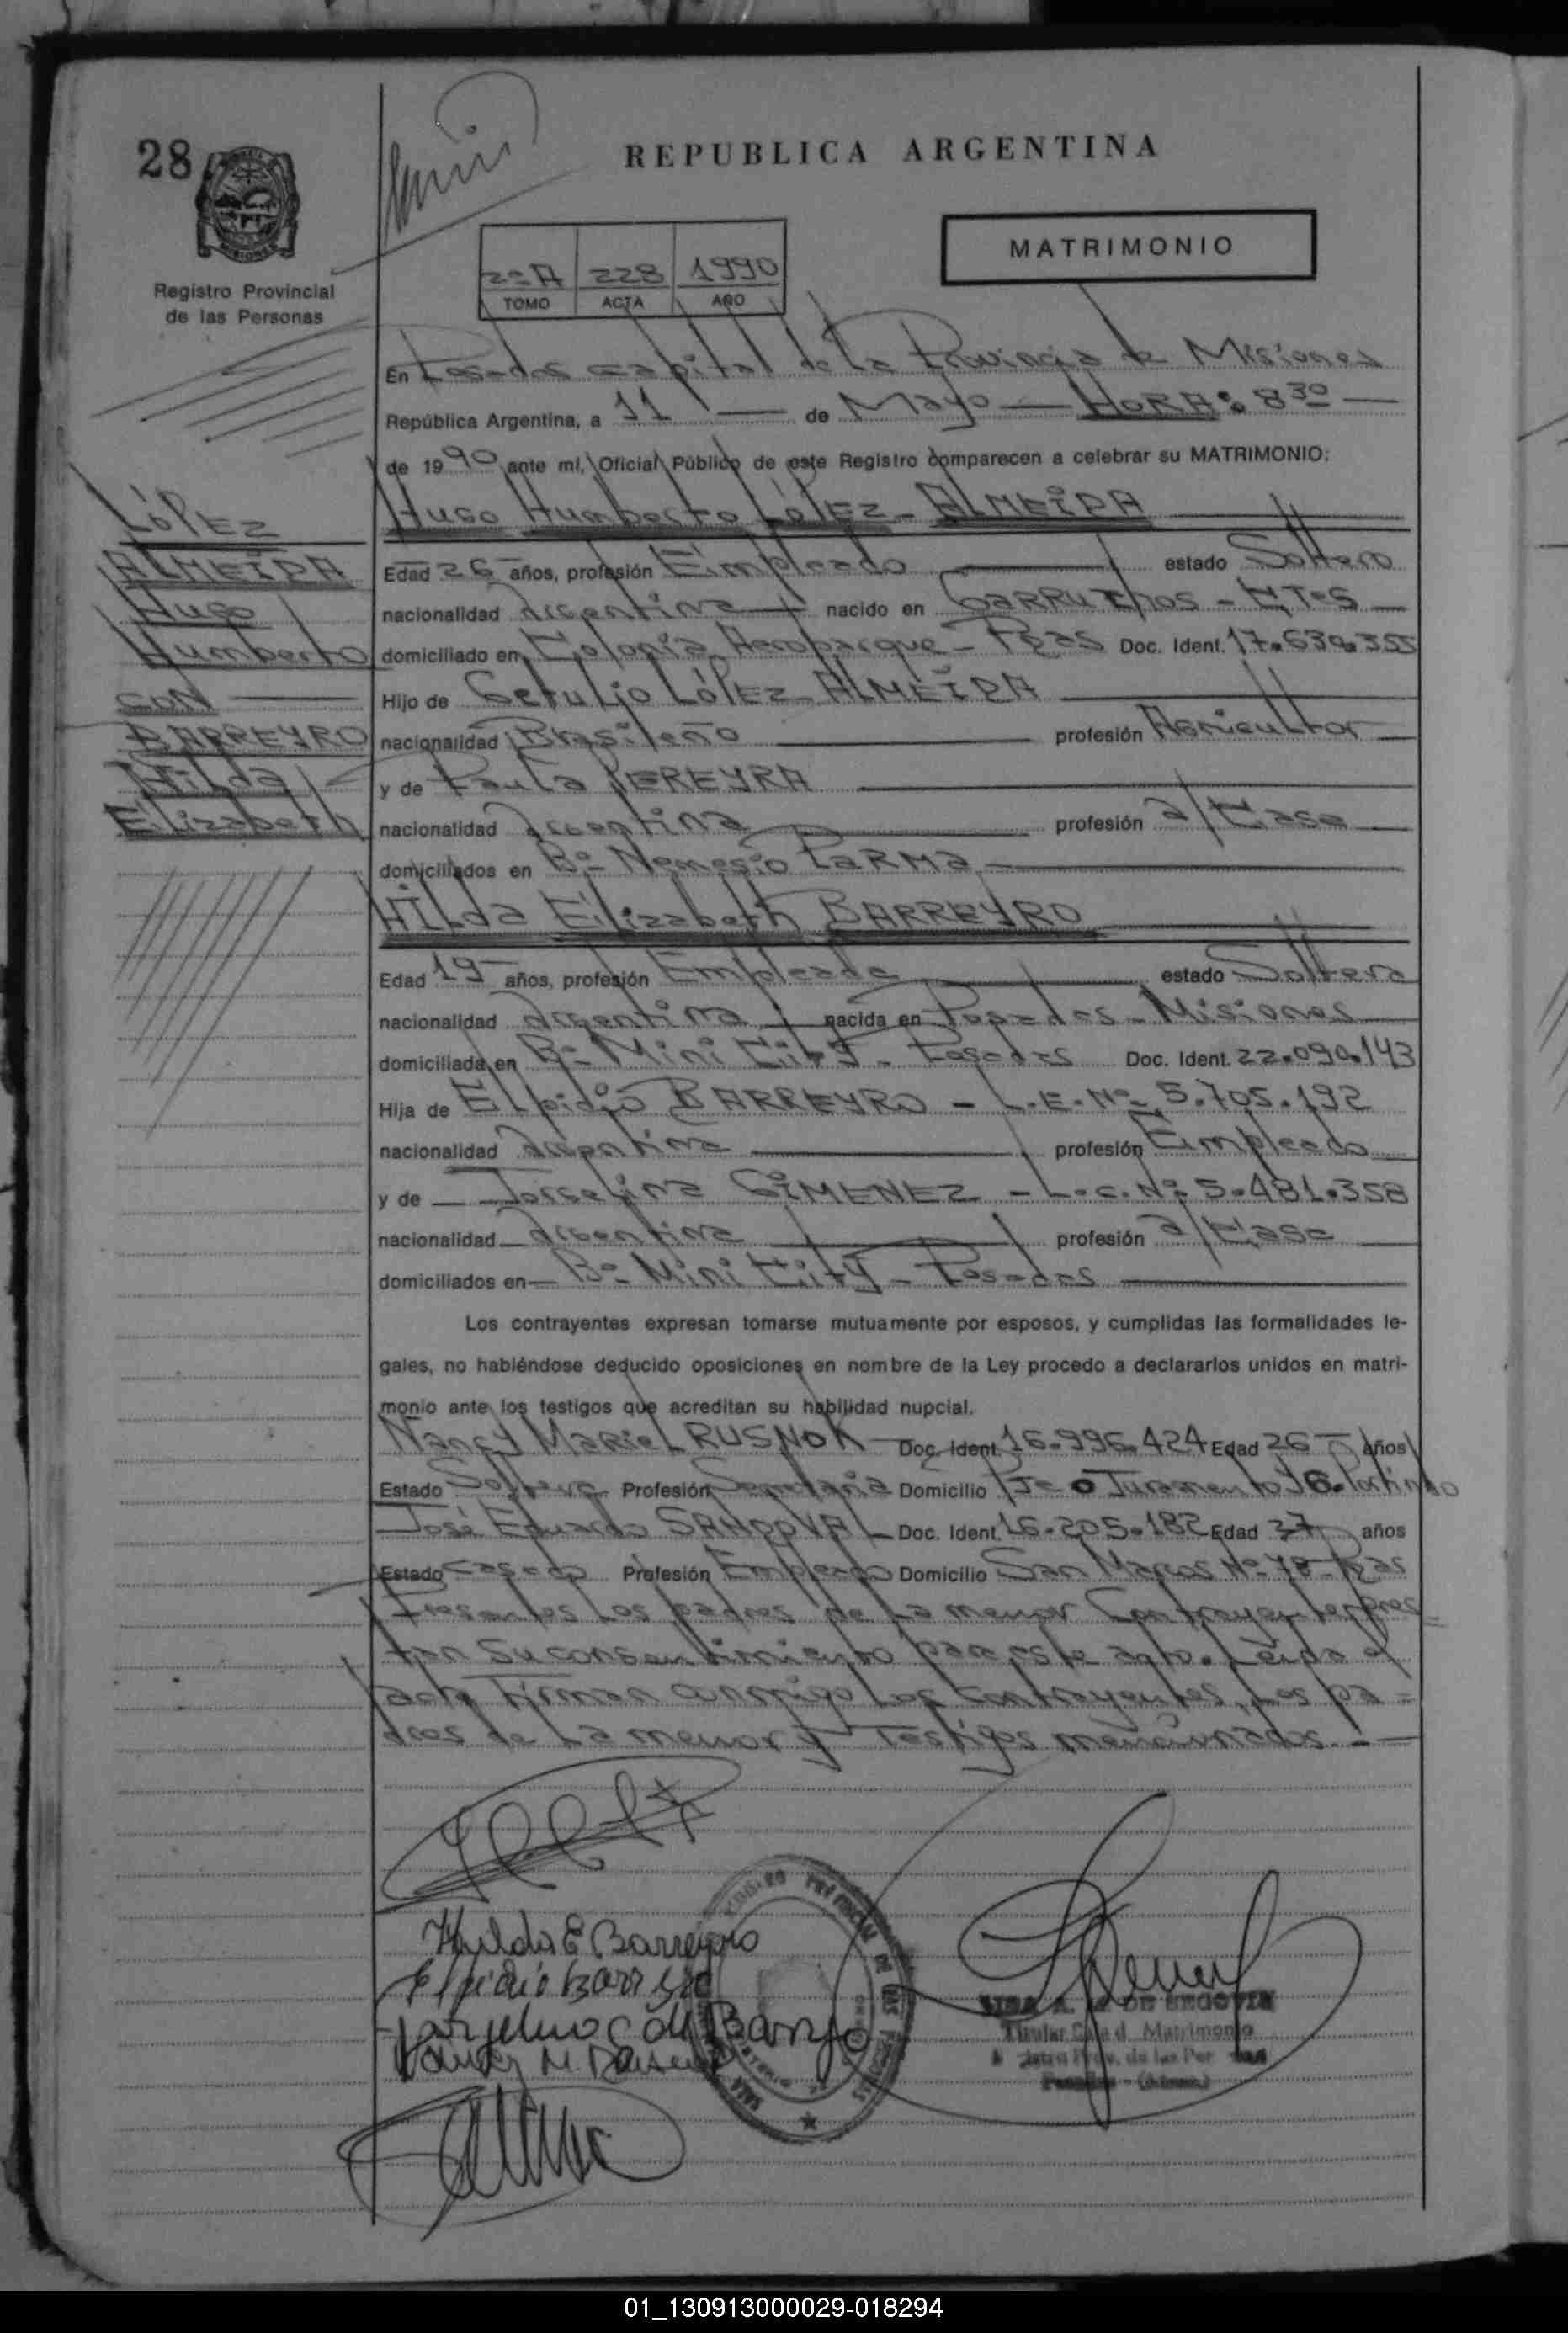 28
REPUBLICA ARGENTINA
MATRIMONIO
2º A 228 1990
TOMO ACTA AÑO
MISIONES
Registro Provincial
de las Personas
En Posadas capital de la Provincia de Misiones
República Argentina, a 11 de Mayo HORA: 8 30
de 1990 ante mí, Oficial Público de este Registro comparecen a celebrar su MATRIMONIO:
LÓPEZ
ALMEIDA
Hugo
Humberto
CON
BARREYRO
Hilda
Elizabeth
Hugo Humberto LÓPEZ - ALMEIDA
Edad 26 años, profesión Empleado estado Soltero
nacionalidad Argentina nacido en GARRUCHOS - CTES
domiciliado en Colonia Aeroparque - Pdas Doc. Ident. 17.639.355
Hijo de Getulio LÓPEZ ALMEIDA
nacionalidad Brasileño profesión Agricultor
y de Paula PEREYRA
nacionalidad Argentina profesión a/ Casa
domiciliados en Bº Nemesio PARMA
HILda Elizabeth BARREYRO
Edad 19 años, profesión Empleada estado Soltera
nacionalidad Argentina nacida en Posadas - Misiones
domiciliada en Bº Mini City - Posadas Doc. Ident. 22.090.143
Hija de Elpidio BARREYRO - L.E. Nº 5.705.192
nacionalidad Argentina profesión Empleado
y de Jorgelina GIMENEZ - L.C. Nº 5.481.358
nacionalidad Argentina profesión a/ Casa
domiciliados en Bº Mini City - Posadas
Los contrayentes expresan tomarse mutuamente por esposos, y cumplidas las formalidades le-
gales, no habiéndose deducido oposiciones en nombre de la Ley procedo a declararlos unidos en matri-
monio ante los testigos que acreditan su habilidad nupcial.
Nancy Mariel RUSNOK Doc. Ident. 16.996.424 Edad 26 años
Estado Soltera Profesión Secretaria Domicilio Juramento
José Eduardo SANDOVAL Doc. Ident. 16.205.182 Edad 27 años
Estado casado Profesión Empleado Domicilio San Marcos Nº 78 - Pdas
Presentes los padres de la menor Contrayente pres-
tan su consentimiento para este acto. Leída el
acta Firman conmigo los contrayentes, los pa-
dres de la menor y Testigos mencionados.-
Hilda E Barreyro
Elpidio Barreyro
Jorgelina G de Barreyro
Nancy M
DE SEGOVIA
Titular Matrimonio
01_130913000029-018294